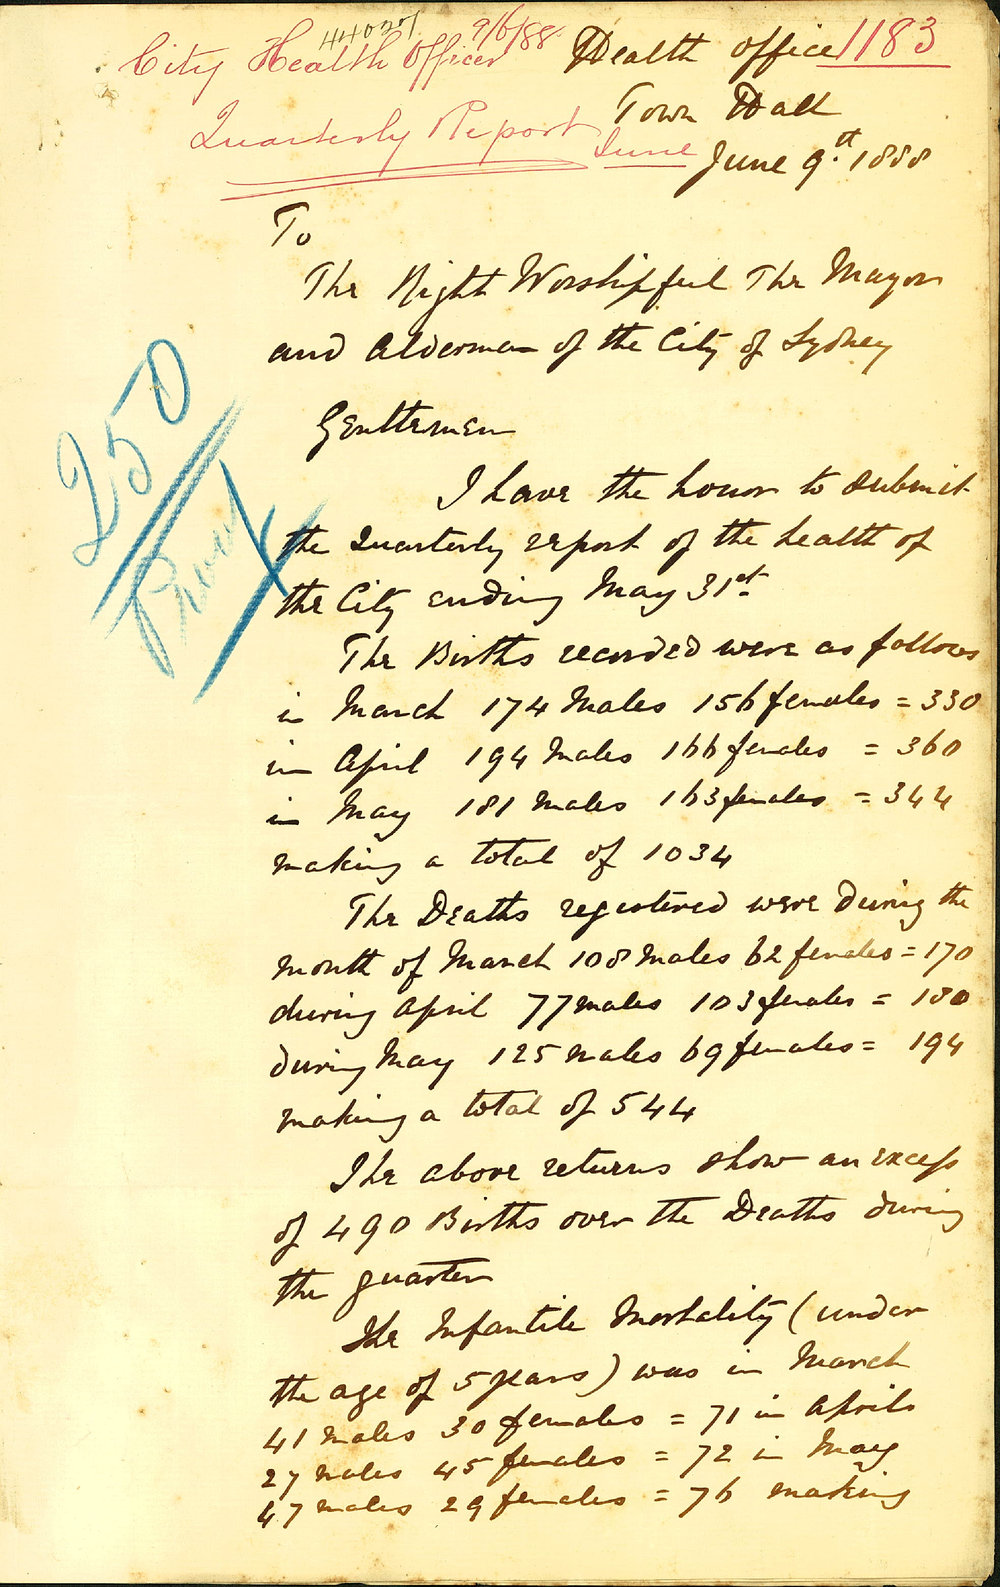 44020
9/6/88
1183
City Health Officer
Quarterly Report
June
Health Office
Town Hall
June 9th 1888
To
The Right Worshipful The Mayor
and Aldermen of the City of Sydney
Gentlemen
250
I have the honor to submit
the Quarterly report of the health of
the City ending May 31st
The Births recorded were as follows
in March 174 Males 156 females = 330
in April 194 Males 166 females = 360
in May 181 Males 163 females = 344
making a total of 1034
The Deaths registered were during the
month of March 108 Males 62 females = 170
during April 77 males 103 females = 180
during May 125 males 69 females = 194
making a total of 544
The above returns show an excess
of 490 Births over the Deaths during
the quarter
The Infantile Mortality (under
the age of 5 years) was in March
41 Males 30 females = 71 in April
27 males 45 females = 72 in May
47 males 29 females = 76 making